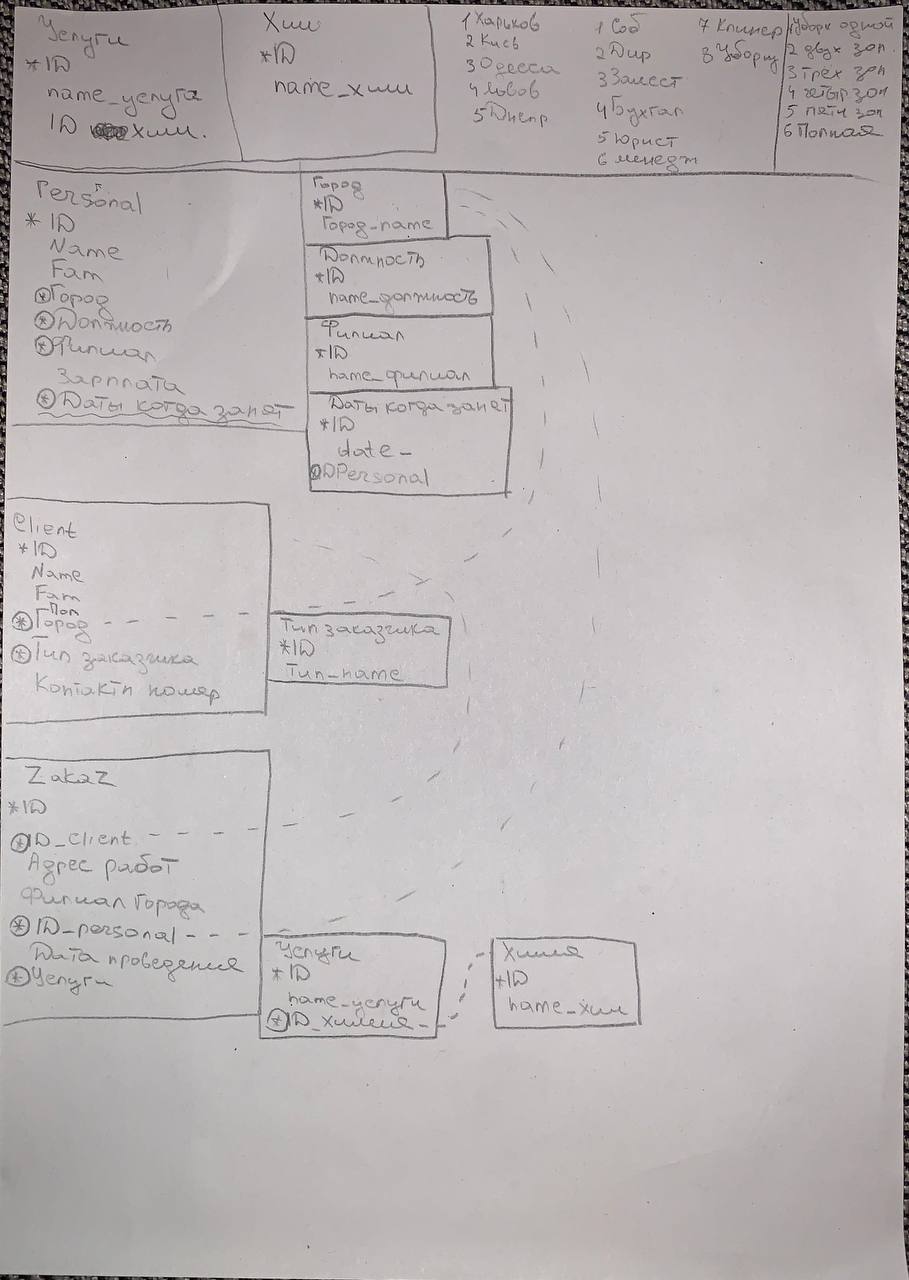 Услуги
*ID
name_услуга
ID хим.
Хим
*ID
name_хим
1 Харьков
2 Киев
3 Одесса
4 Львов
5 Днепр
1 Соб
2 Дир
3 Замест
4 Бухгал
5 Юрист
6 менедж
7 Клинер
8 Уборщ
1 Уборк одной
2 двух зон.
3 трёх зон
4 четыр зон
5 пяти зон
6 Полная
Personal
* ID
Name
Fam
* Город
* Должность
* Филиал
Зарплата
* Даты когда занят
Город
*ID
Город_name
Должность
*ID
name_должность
Филиал
*ID
name_филиал
Даты когда занят
*ID
date_
IDPersonal
Client
*ID
Name
Fam
Пол
* Город
* Тип заказчика
Контактн номер
Тип заказчика
*ID
Тип_name
Zakaz
*ID
* ID_Client
Адрес работ
Филиал города
* ID_personal
Дата проведения
* Услуги
Услуги
* ID
name_услуги
* ID_химия
Химия
*ID
name_хим